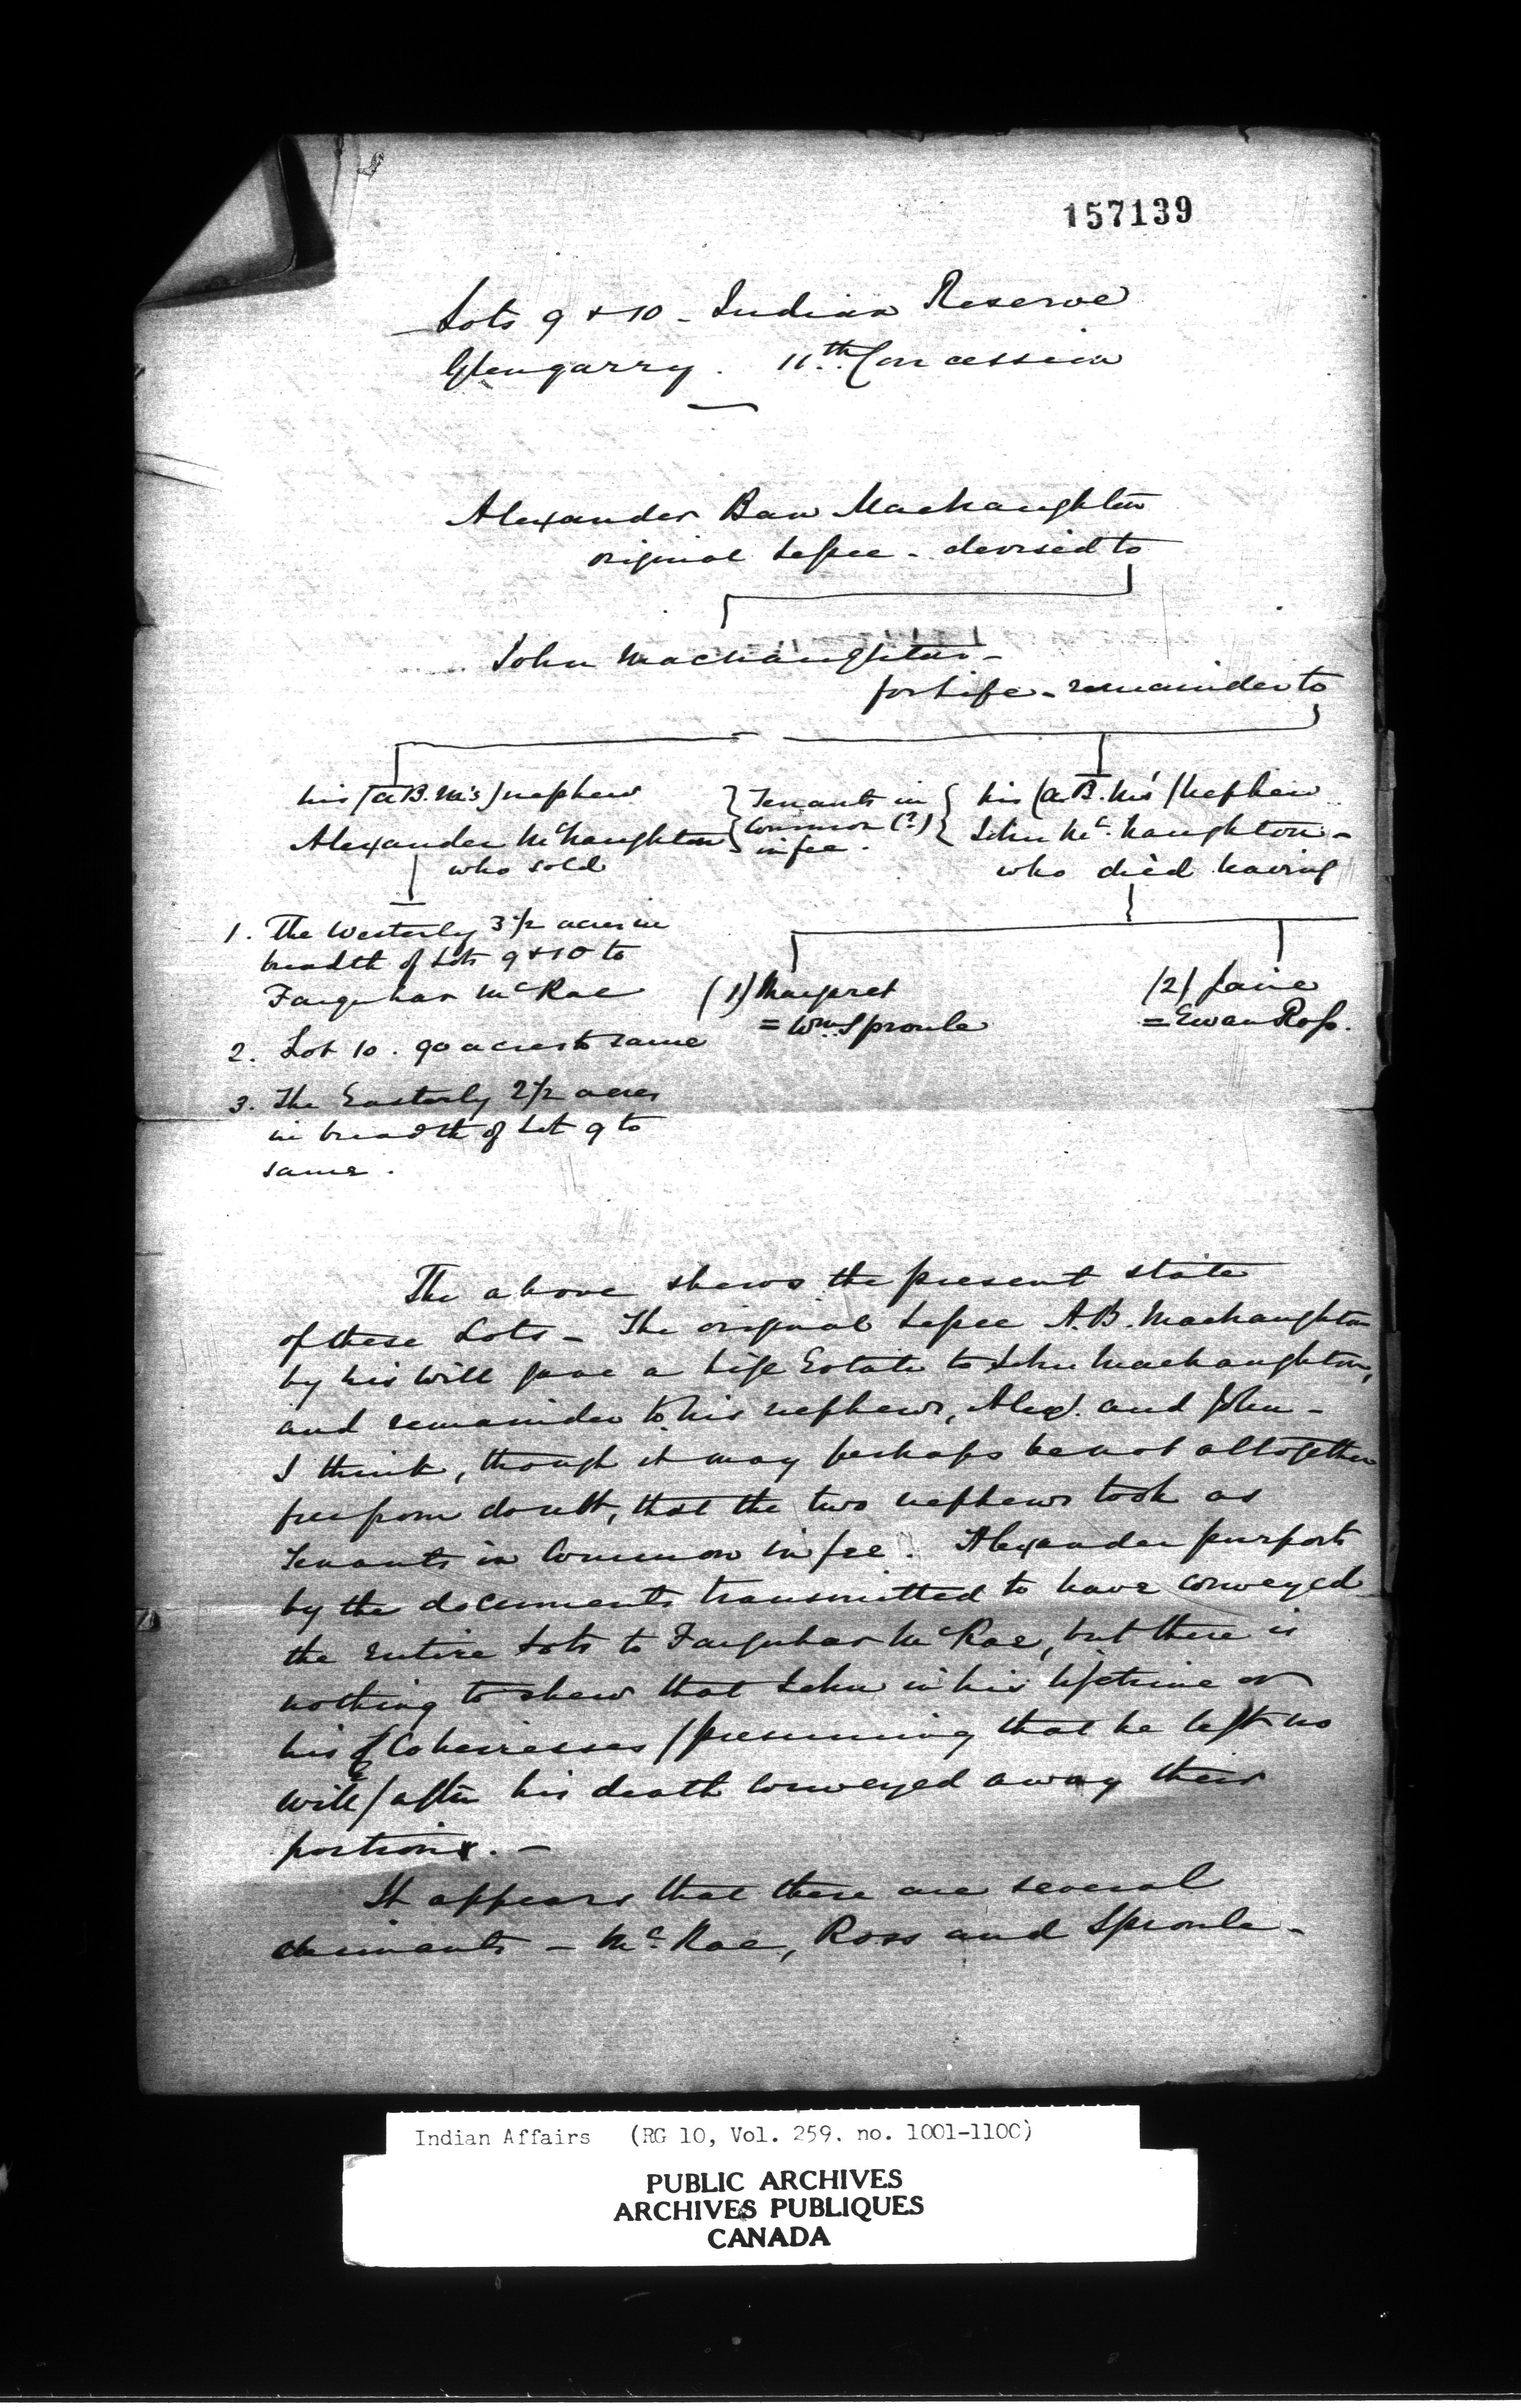 157139
Lots 9 & 10 - Indian Reserve
Glengarry. 11th Concession
Alexander Ban MacNaughton
original Lessee - devised to
John MacNaughton -
for Life - remainder to
his (A B. M's) nephew
Alexander McNaughton
who sold
Tenants in
Common (?)
in fee.
his (A. B. M's) nephew
John Mc. Naughton -
who died having
1. The Westerly 3 1/2 acres in
breadth of Lots 9 & 10 to
Farquhar McRae
2. Lot 10. 90 acres to same
3. The Easterly 2 1/2 acres
in breadth of Lot 9 to
same.
(1) Margaret
= Wm. Sproule
(2) Janie
= Ewan Ross.
The above shews the present state
of these Lots - The original Lessee A.B. MacNaughton
by his will gave a life Estate to John MacNaughton,
and remainder to his nephews, Alexr. and John -
I think, though it may perhaps be not altogether
free from doubt, that the two nephews took as
Tenants in Common in fee. Alexander purports
by the documents transmitted to have conveyed
the entire Lots to Farquhar McRae, but there is
nothing to shew that John in his lifetime or
his Coheiresses (presuming that he left no
will) after his death conveyed away their
portion. -
It appears that there are several
claimants - Mc. Rae, Ross and Sproule -
Indian Affairs (RG 10, Vol. 259. no. 1001-1100)
PUBLIC ARCHIVES
ARCHIVES PUBLIQUES
CANADA